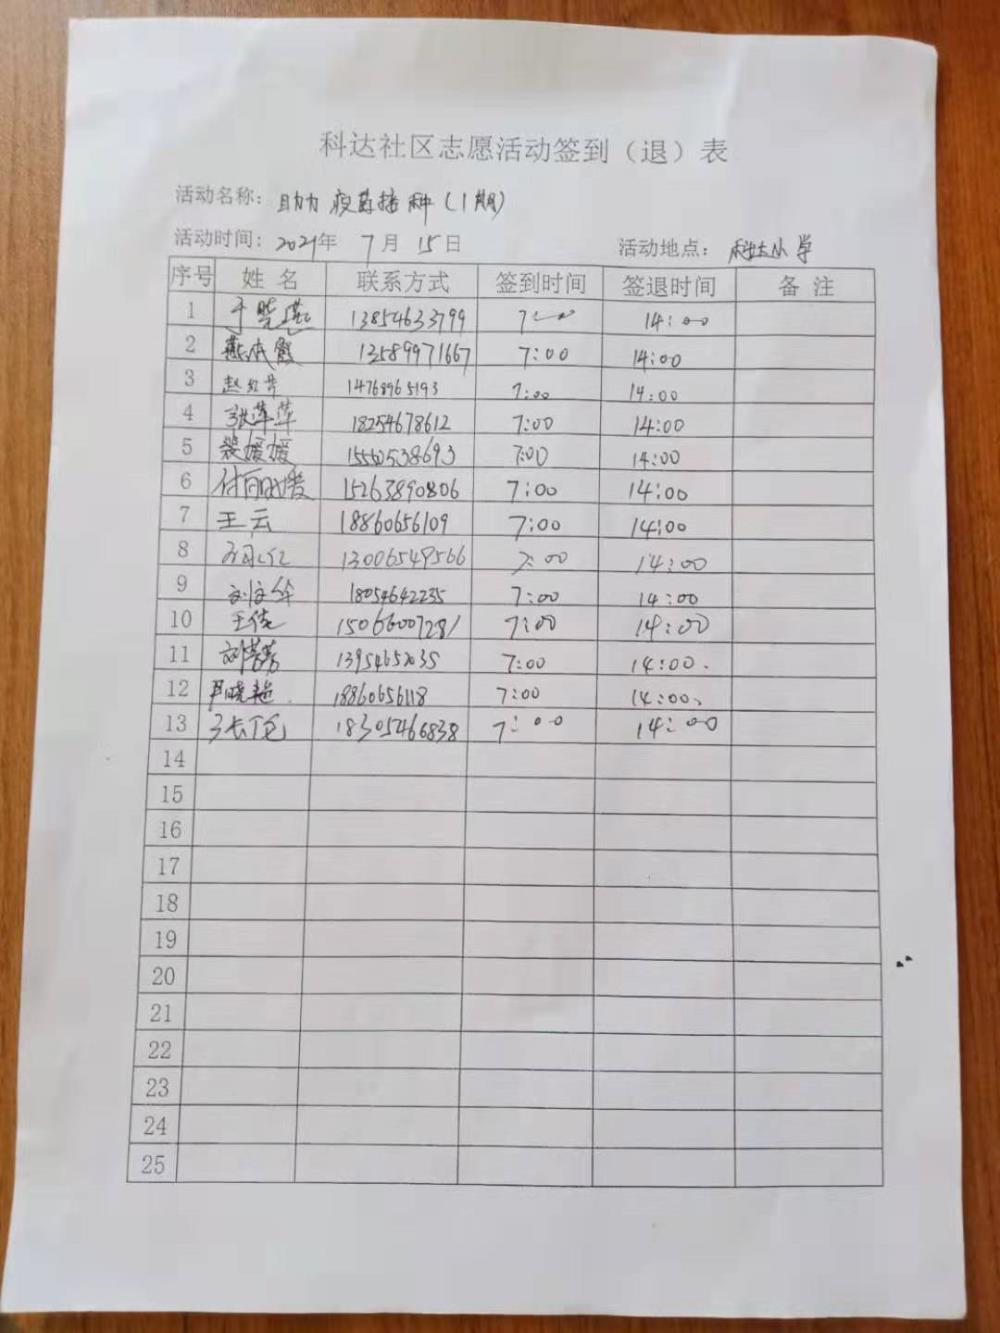 科达社区志愿活动签到（退）表
活动名称：助力疫苗接种（1期）
活动时间：2021年 7月 15日 活动地点：科达小学
序号 姓名 联系方式 签到时间 签退时间 备注
1 于晓燕 13854633799 7:00 14:00
2 燕冰霞 13589971667 7:00 14:00
3 赵红 14768965193 7:00 14:00
4 张萍萍 18254678612 7:00 14:00
5 裴媛媛 15550538693 7:00 14:00
6 付 媛 15263890806 7:00 14:00
7 王云 18860656109 7:00 14:00
8 13006549566 7:00 14:00
9 刘 18054642235 7:00 14:00
10 王倩 15066007281 7:00 14:00
11 刘芳芳 7:00 14:00.
12 晓艳. 18860656118 7:00 14:00.
13 张 18305466838 7:00 14:00
14
15
16
17
18
19
20
21
22
23
24
25